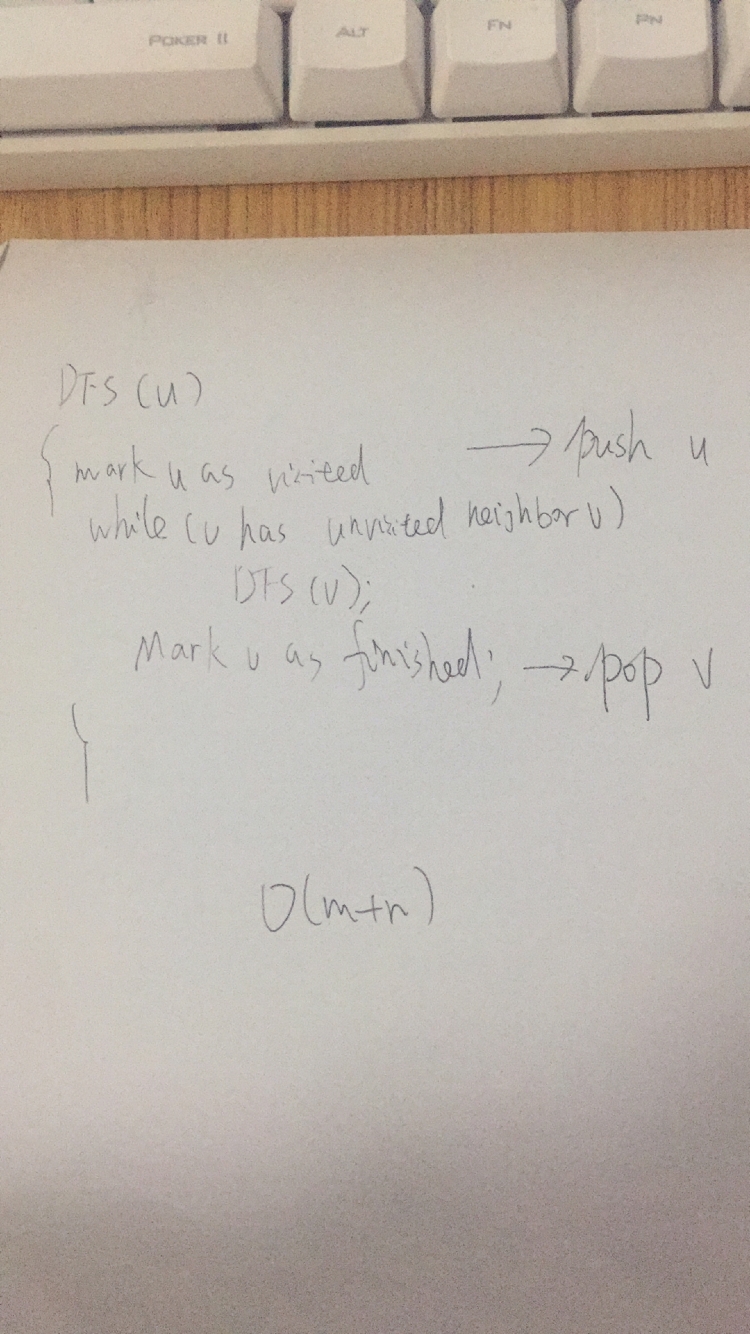 POKER II ALT FN PN
DFS (u)
{ mark u as visited → push u
while (u has unvisited neighbor v)
DFS (v);
Mark u as finished; → pop v
}
O(m+n)